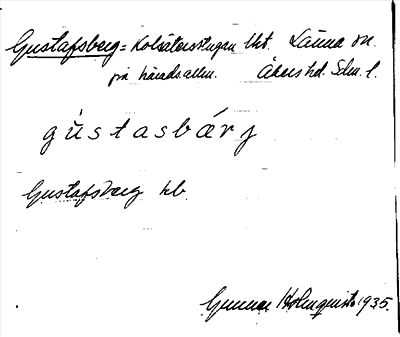 Gustafsberg = Kolsätersstugan lht. Länna sn.
på häradsallm. Åkers hd. Sdm. l.
gùstasbárj
Gustafsberg hb
Gunnar Holmquist 1935.